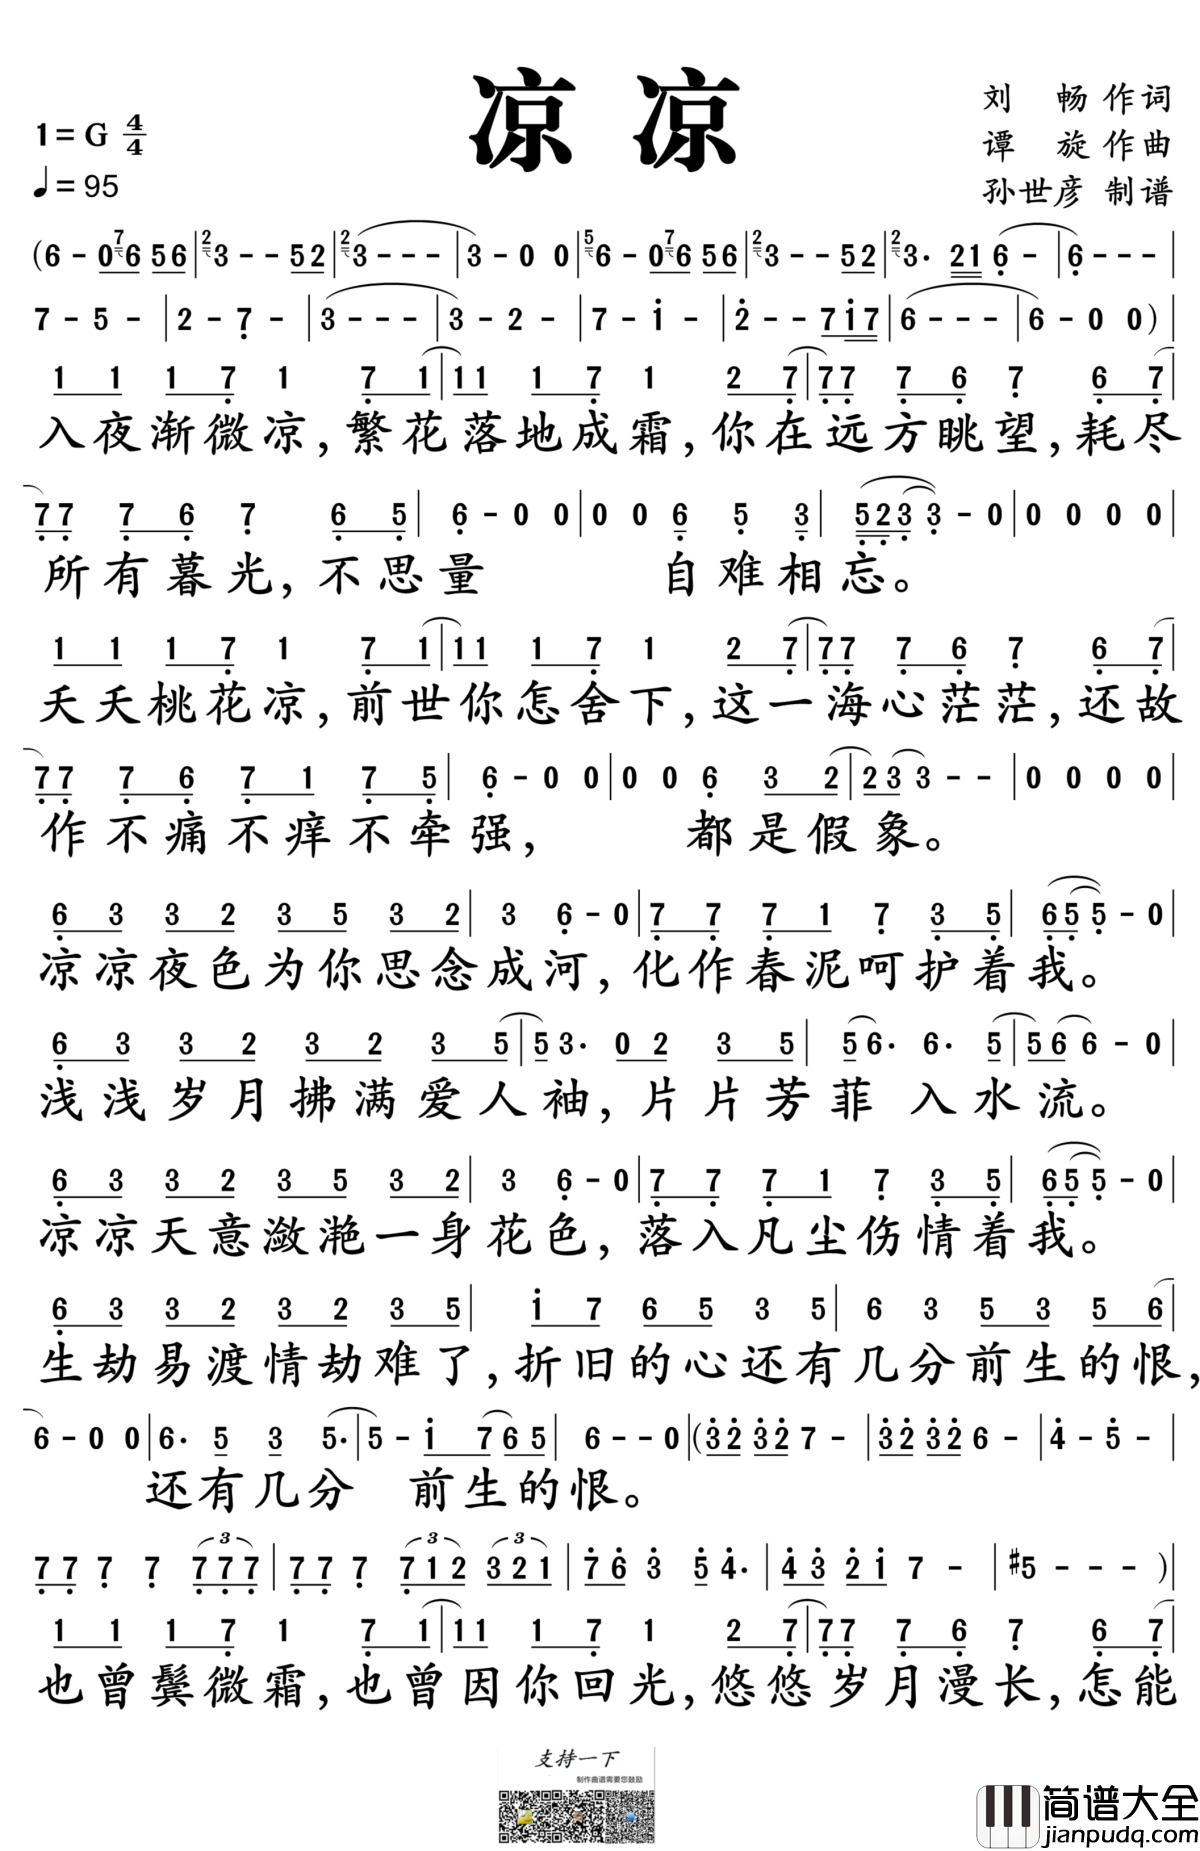 凉凉
刘 畅 作词
1=G 4/4
谭 旋 作曲
♩=95
孙世彦 制谱
(6 - 0 7 6 5 6 | 2 3 - - 5 2 | 2 3 - - - | 3 - 0 0 | 5 6 - 0 7 6 5 6 | 2 3 - - 5 2 | 2 3· 2 1 6 - | 6 - - - |
7 - 5 - | 2 - 7 - | 3 - - - | 3 - 2 - | 7 - i - | 2 - - 7 i 7 | 6 - - - | 6 - 0 0) |
1 1 1 7 1 7 1 | 1 1 1 7 1 2 7 | 7 7 7 6 7 6 7 |
入夜渐微凉,繁花落地成霜,你在远方眺望,耗尽
7 7 7 6 7 6 5 | 6 - 0 0 | 0 0 6 5 3 | 5 2 3 3 - 0 | 0 0 0 0 |
所有暮光,不思量 自难相忘。
1 1 1 7 1 7 1 | 1 1 1 7 1 2 7 | 7 7 7 6 7 6 7 |
夭夭桃花凉,前世你怎舍下,这一海心茫茫,还故
7 7 7 6 7 1 7 5 | 6 - 0 0 | 0 0 6 3 2 | 2 3 3 - - | 0 0 0 0 |
作不痛不痒不牵强, 都是假象。
6 3 3 2 3 5 3 2 | 3 6 - 0 | 7 7 7 1 7 3 5 | 6 5 5 - 0 |
凉凉夜色为你思念成河,化作春泥呵护着我。
6 3 3 2 3 2 3 5 | 5 3· 0 2 3 5 | 5 6· 6· 5 | 5 6 6 - 0 |
浅浅岁月拂满爱人袖,片片芳菲入水流。
6 3 3 2 3 5 3 2 | 3 6 - 0 | 7 7 7 1 7 3 5 | 6 5 5 - 0 |
凉凉天意潋滟一身花色,落入凡尘伤情着我。
6 3 3 2 3 2 3 5 | i 7 6 5 3 5 | 6 3 5 3 5 6 |
生劫易渡情劫难了,折旧的心还有几分前生的恨,
6 - 0 0 | 6· 5 3 5· | 5 - i 7 6 5 | 6 - - 0 | (3 2 3 2 7 - | 3 2 3 2 6 - | 4 - 5 - |
还有几分 前生的恨。
7 7 7 7 3 7 7 7 | 7 7 7 3 7 1 2 3 3 2 1 | 7 6 3 5 4· | 4 3 2 i 7 - | #5 - - - ) |
1 1 1 7 1 7 1 | 1 1 1 7 1 2 7 | 7 7 7 6 7 6 7 |
也曾鬓微霜,也曾因你回光,悠悠岁月漫长,怎能
支持一下
制作曲谱需要您鼓励
简谱大全
jianpudq.com